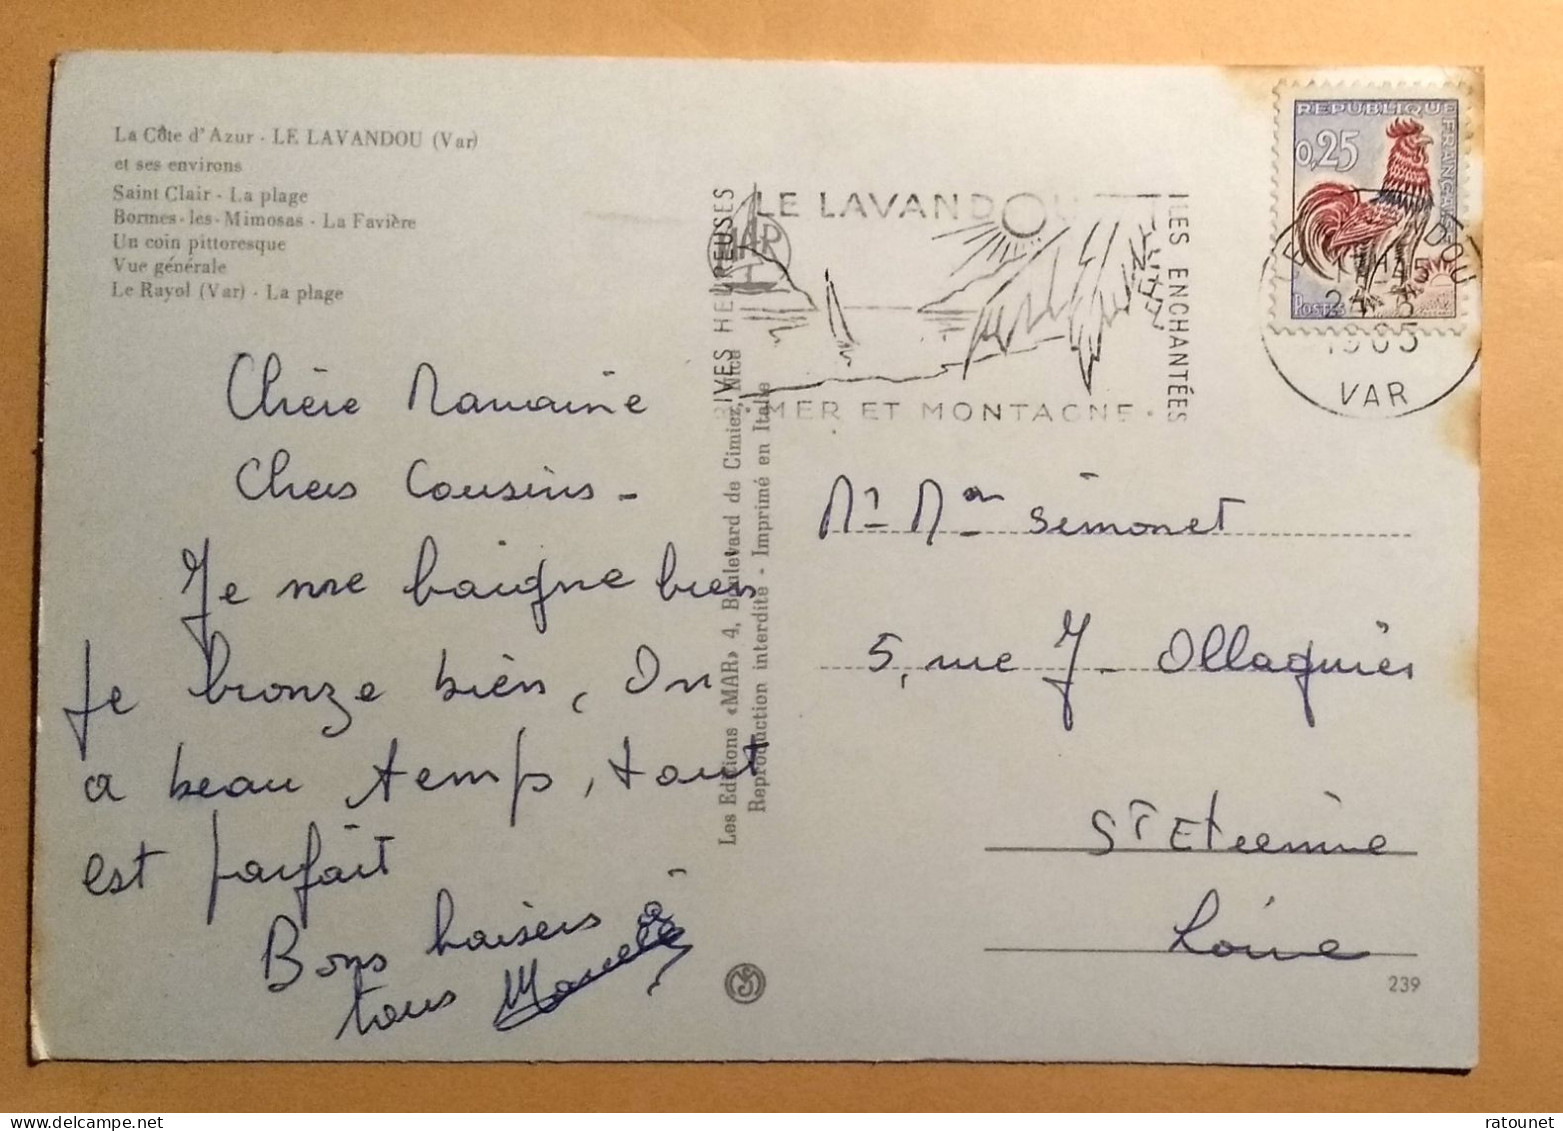 La Côte d'Azur - LE LAVANDOU (Var)
et ses environs
Saint Clair - La plage
Bormes-les-Mimosas - La Favière
Un coin pittoresque
Vue générale
Le Rayol (Var) - La plage
Chère Marraine
Chers Cousins -
Je me baigne bien
Je bronze bien, On
a beau temps, tout
est parfait
Bons baisers à
tous
Les Editions «MAR» 4, Boulevard de Cimiez, Nice
Reproduction interdite - Imprimé en Italie
MAR
RIVES HEUREUSES
LE LAVANDOU
ILES ENCHANTÉES
MER ET MONTAGNE
REPUBLIQUE FRANÇAISE
0,25
POSTES
1965
VAR
Mr Mme Simonet
5, rue J - Ollagnier
St Etienne
Loire
239
ratounet